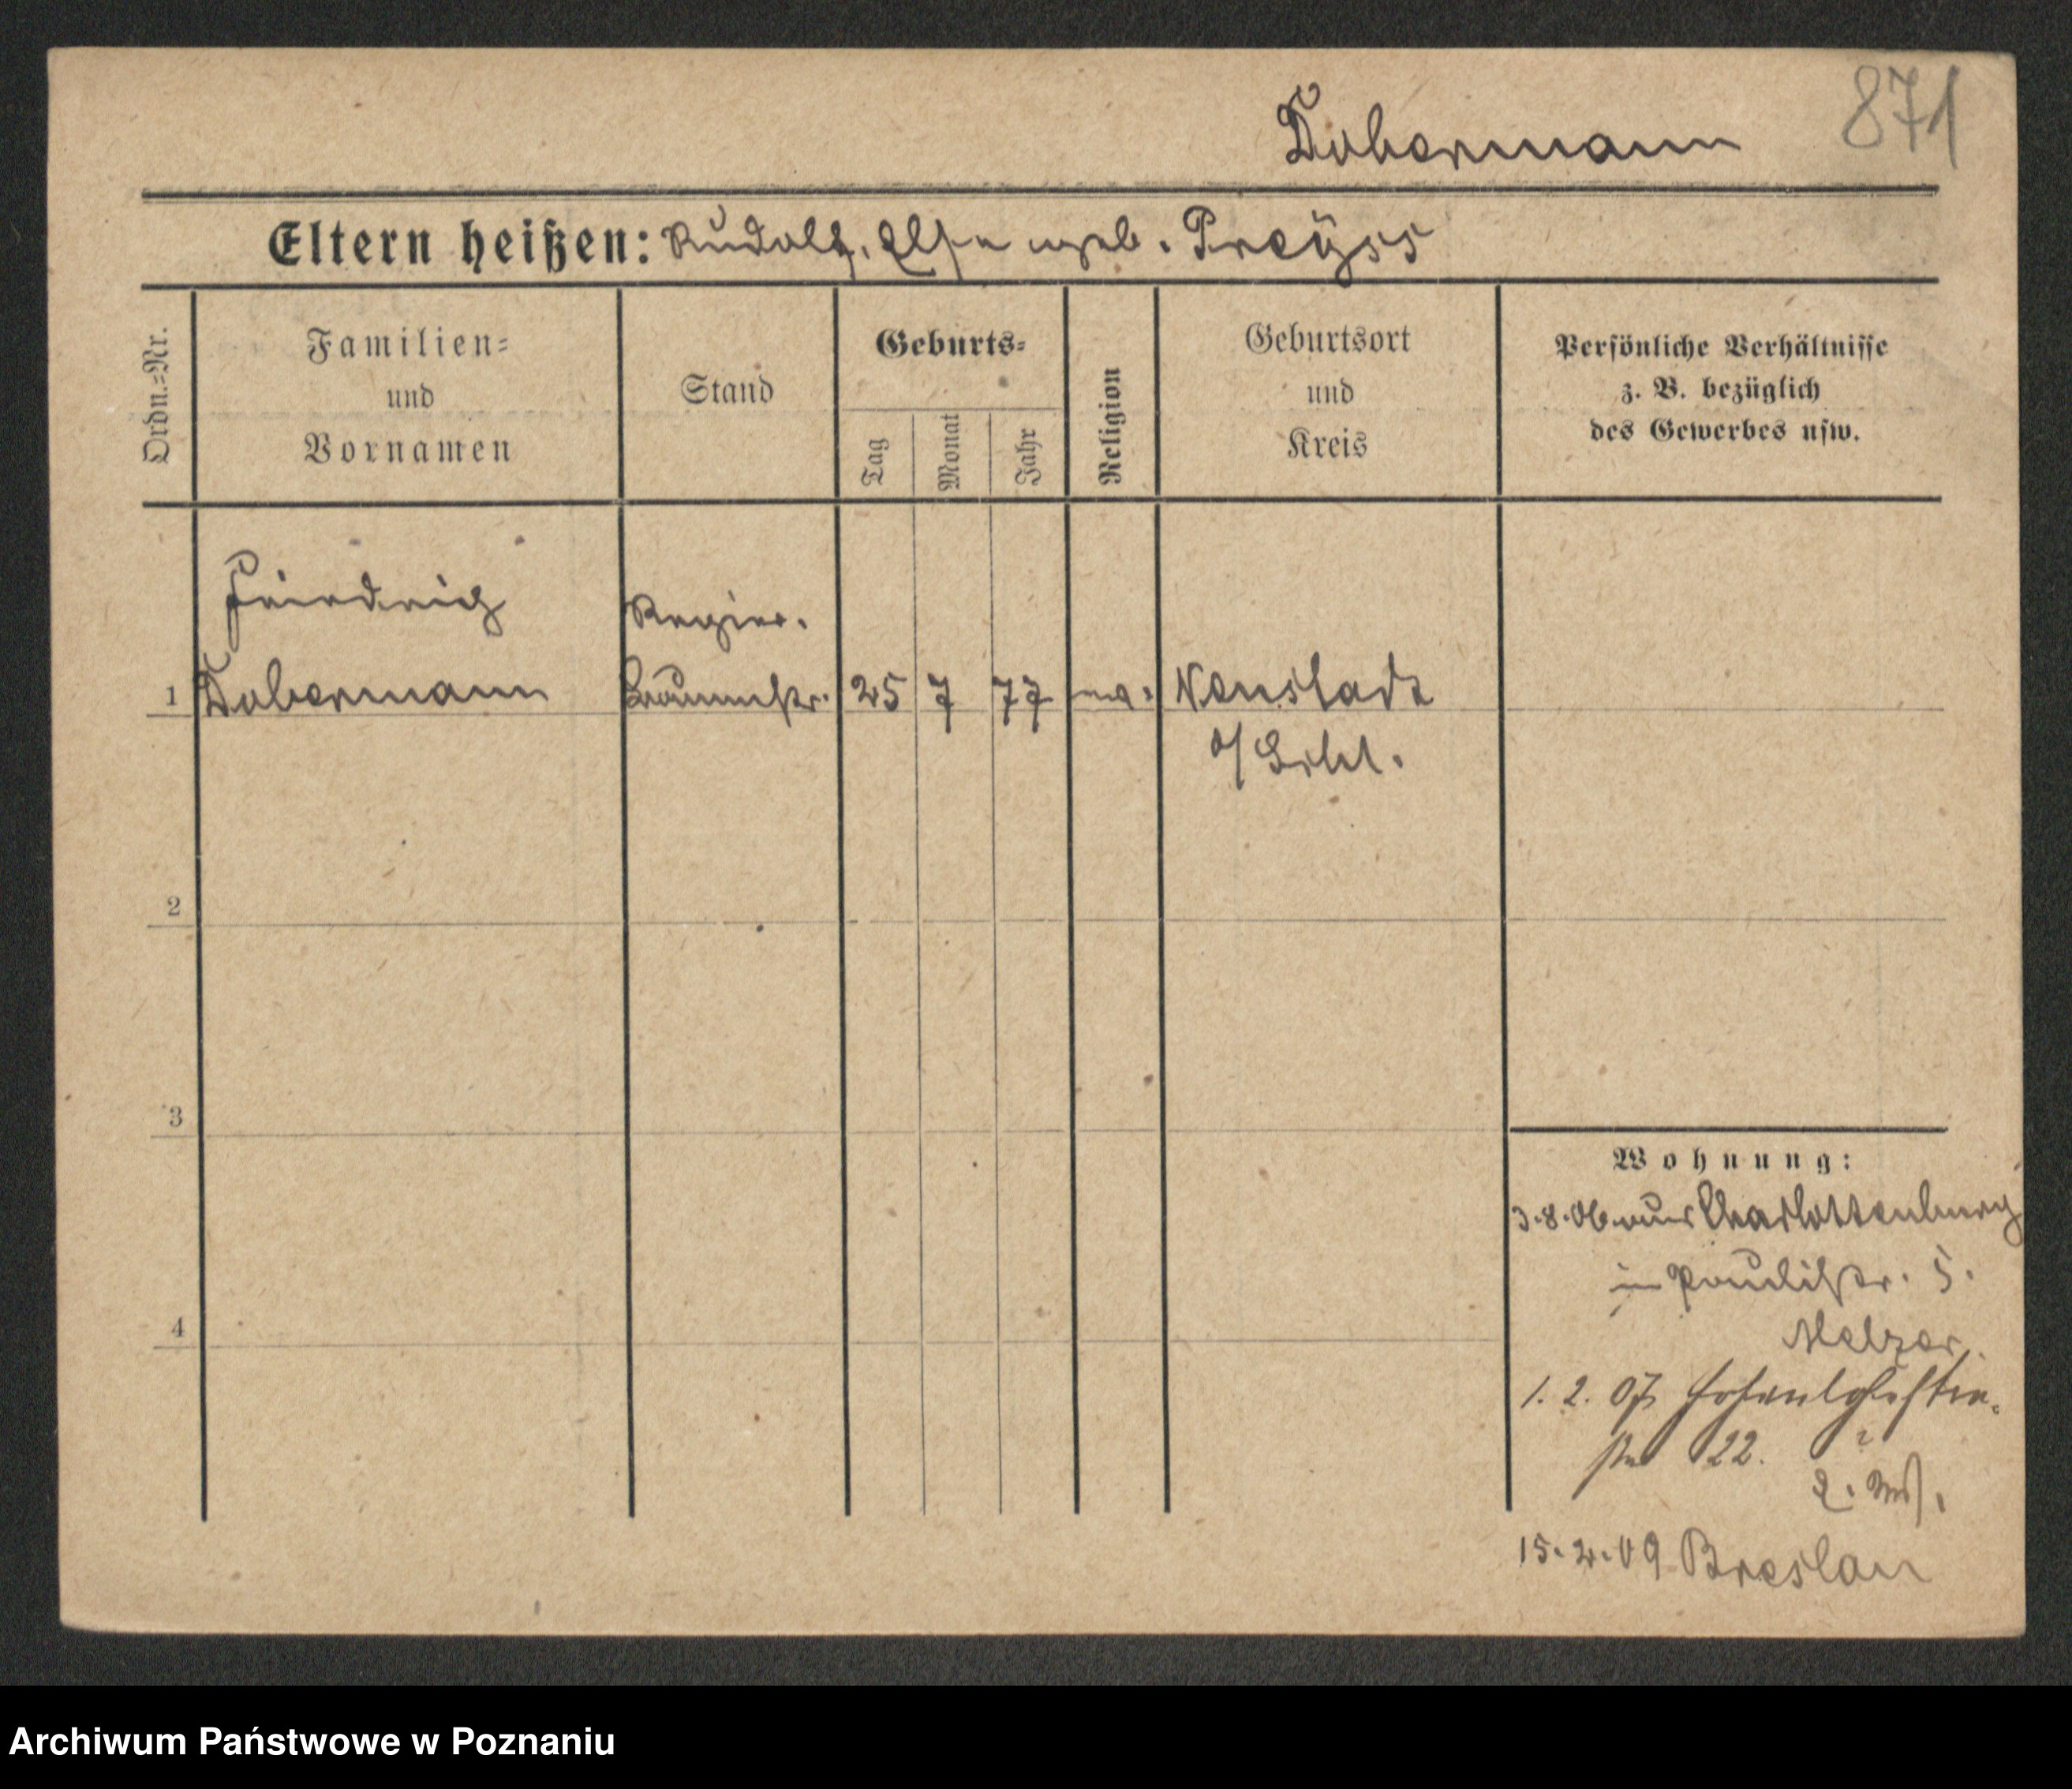 Dobermann 871
Eltern heißen: Rudolf, Else geb. Preÿss
Ordn.=Nr.
Familien=
und
Vornamen
Stand
Geburts=
Tag
Monat
Jahr
Religion
Geburtsort
und
Kreis
Persönliche Verhältnisse
z. B. bezüglich
des Gewerbes usw.
Friedrich
Regier.
1 Dobermann Baumstr. 25 7 77 ev. Neustadt
o/Schl.
2
3
4
Wohnung:
3.8.06 aus Charlottenburg
in Paulistr. 5.
Melzer.
1. 2. 07
22.
15.2.09 Breslau
Archiwum Państwowe w Poznaniu